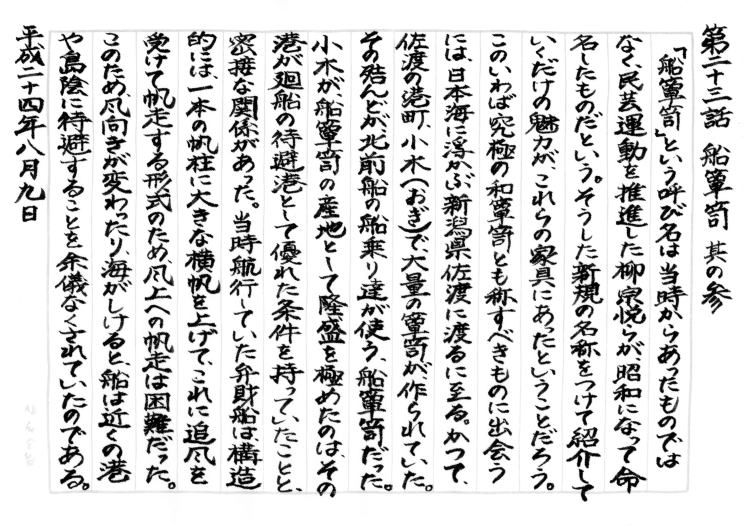 第二十三話 船簞笥 其の参
「船簞笥」という呼び名は当時からあったものでは
なく、民芸運動を推進した柳宗悦らが昭和になって命
名したものだという。そうした新規の名称をつけて紹介して
いくだけの魅力が、これらの家具にあったということだろう。
このいわば究極の和簞笥とも称すべきものに出会う
には、日本海に浮かぶ新潟県佐渡に渡るに至る。かつて、
佐渡の港町、小木(おぎ)で、大量の簞笥が作られていた。
その殆んどが、北前船の船乗り達が使う、船簞笥だった。
小木が、船簞笥の産地として隆盛を極めたのは、その
港が廻船の待避港として優れた条件を持っていたことと、
密接な関係があった。当時航行していた弁財船は、構造
的には、一本の帆柱に大きな横帆を上げて、これに追風を
受けて帆走する形式のため、風上への帆走は困難だった。
このため、風向きが変わったり、海がしけると、船は近くの港
や島陰に待避することを余儀なくされていたのである。
平成二十四年八月九日